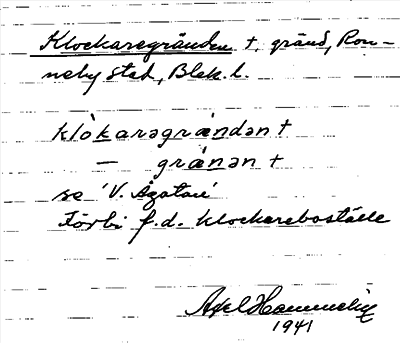 Klockaregränden +, gränd, Ron-
neby stad, Blek. l.
klòkaragrændan +
— grænan +
se 'V. Ågatan'
Förbi f.d. klockareboställe
Axel Hemmelin
1941